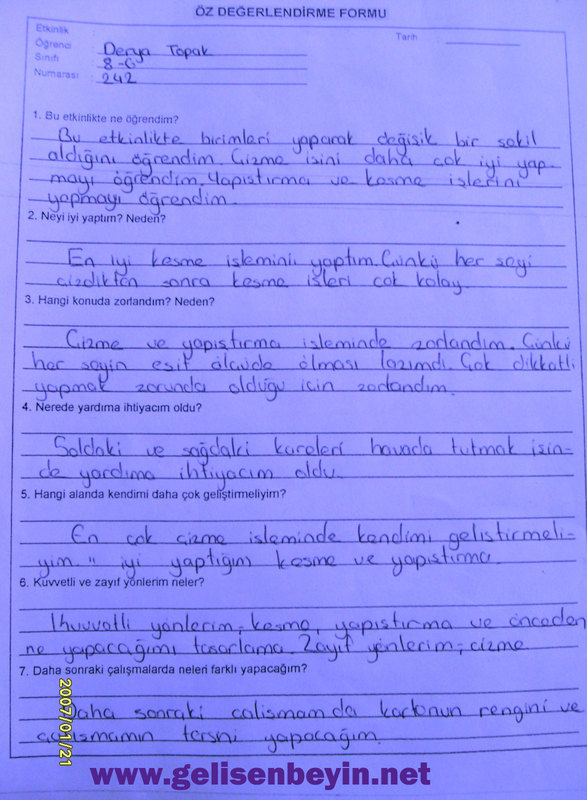 ÖZ DEĞERLENDİRME FORMU
Etkinlik
Tarih :
Öğrenci : Derya Topak
Sınıfı : 8-G
Numarası : 242
1. Bu etkinlikte ne öğrendim?
Bu etkinlikte birimleri yaparak değişik bir şekil
aldığını öğrendim. Çizme işini daha çok iyi yap-
mayı öğrendim. Yapıştırma ve kesme işlerini
yapmayı öğrendim.
2. Neyi iyi yaptım? Neden?
En iyi kesme işlemini yaptım. Çünkü her şeyi
çizdikten sonra kesme işleri çok kolay.
3. Hangi konuda zorlandım? Neden?
Çizme ve yapıştırma işleminde zorlandım. Çünkü
her şeyin eşit ölçüde olması lazımdı. Çok dikkatli
yapmak zorunda olduğu için zorlandım.
4. Nerede yardıma ihtiyacım oldu?
Soldaki ve sağdaki kareleri havada tutmak işin-
de yardıma ihtiyacım oldu.
5. Hangi alanda kendimi daha çok geliştirmeliyim?
En çok çizme işleminde kendimi geliştirmeli-
yim. " iyi yaptığım kesme ve yapıştırma.
6. Kuvvetli ve zayıf yönlerim neler?
Kuvvetli yönlerim; kesme, yapıştırma ve önceden
ne yapacağımı tasarlama. Zayıf yönlerim; çizme
7. Daha sonraki çalışmalarda neleri farklı yapacağım?
Daha sonraki çalışmamda kartonun rengini ve
çalışmamın tersni yapacağım.
2007/01/21
www.gelisenbeyin.net